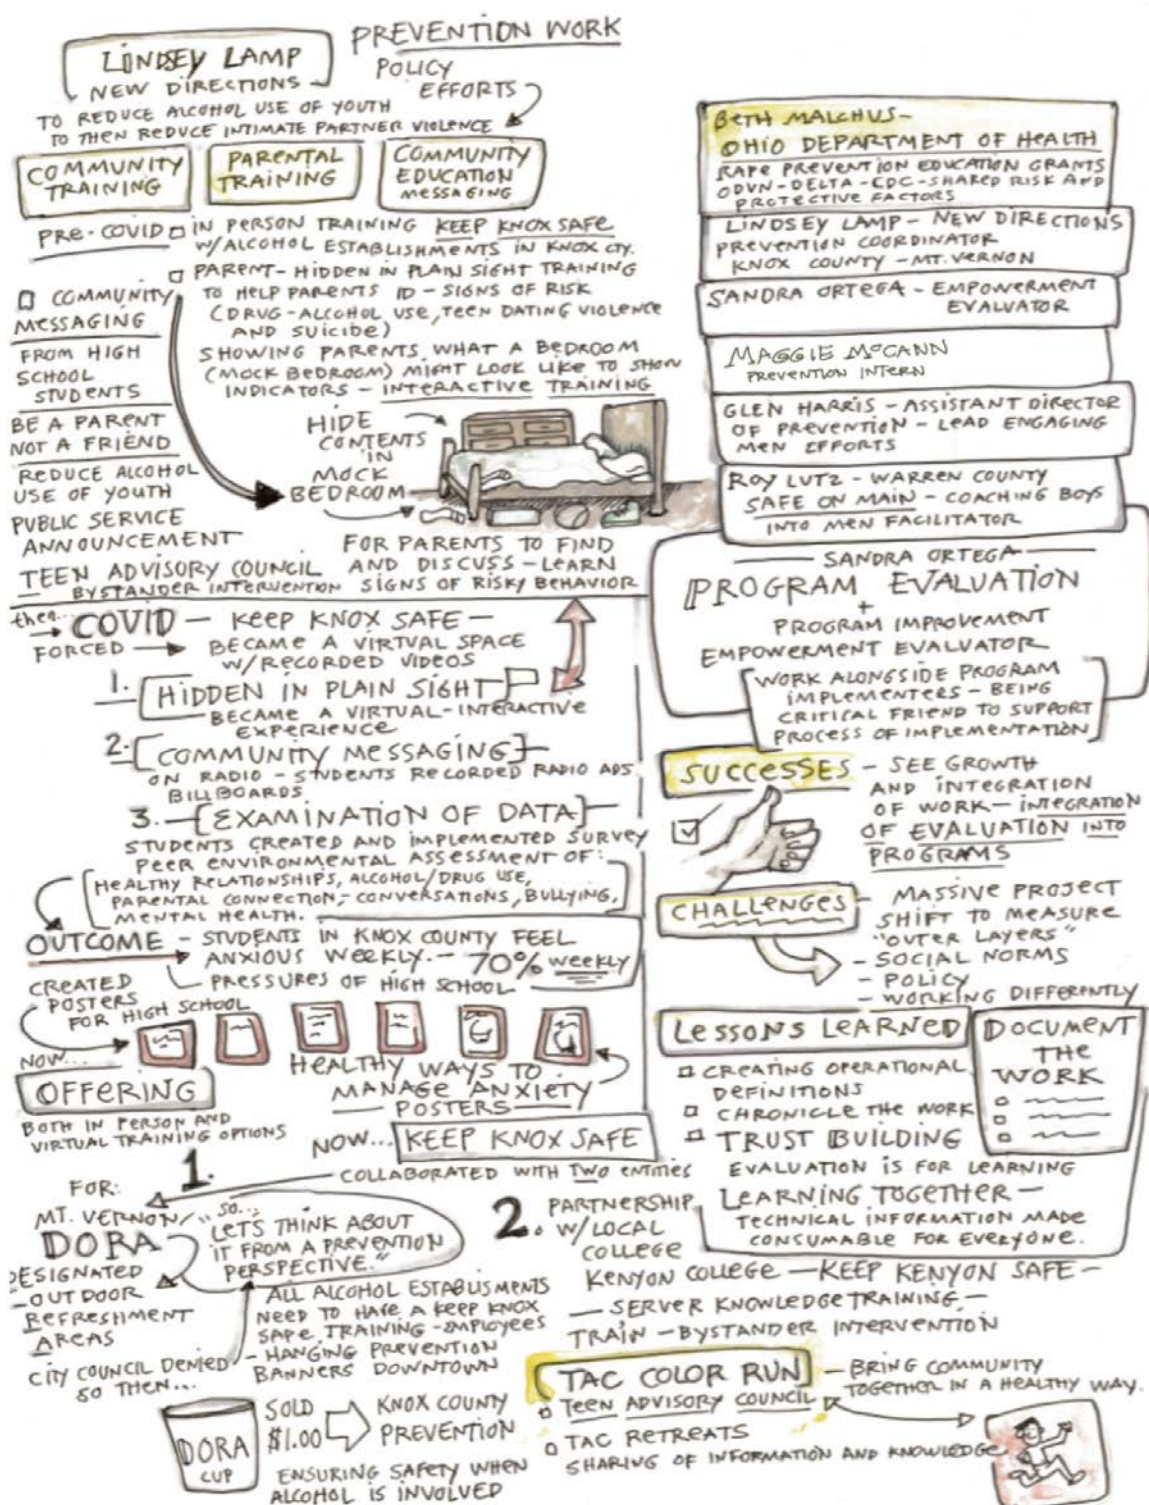 LINDSEY LAMP
NEW DIRECTIONS
PREVENTION WORK
POLICY
EFFORTS
TO REDUCE ALCOHOL USE OF YOUTH
TO THEN REDUCE INTIMATE PARTNER VIOLENCE
COMMUNITY
TRAINING
PARENTAL
TRAINING
COMMUNITY
EDUCATION
MESSAGING
PRE-COVID
IN PERSON TRAINING KEEP KNOX SAFE
W/ALCOHOL ESTABLISHMENTS IN KNOX CTY.
PARENT-HIDDEN IN PLAIN SIGHT TRAINING
TO HELP PARENTS ID - SIGNS OF RISK
(DRUG-ALCOHOL USE, TEEN DATING VIOLENCE
AND SUICIDE)
SHOWING PARENTS WHAT A BEDROOM
(MOCK BEDROOM) MIGHT LOOK LIKE TO SHOW
INDICATORS - INTERACTIVE TRAINING
COMMUNITY
MESSAGING
FROM HIGH
SCHOOL
STUDENTS
BE A PARENT
NOT A FRIEND
REDUCE ALCOHOL
USE OF YOUTH
PUBLIC SERVICE
ANNOUNCEMENT
TEEN ADVISORY COUNCIL
BYSTANDER INTERVENTION
HIDE
CONTENTS
IN
MOCK
BEDROOM
FOR PARENTS TO FIND
AND DISCUSS - LEARN
SIGNS OF RISKY BEHAVIOR
then...
COVID - KEEP KNOX SAFE -
FORCED
BECAME A VIRTUAL SPACE
W/RECORDED VIDEOS
1. HIDDEN IN PLAIN SIGHT
BECAME A VIRTUAL-INTERACTIVE
EXPERIENCE
2. COMMUNITY MESSAGING
ON RADIO - STUDENTS RECORDED RADIO ADS
BILLBOARDS
3. EXAMINATION OF DATA
STUDENTS CREATED AND IMPLEMENTED SURVEY
PEER ENVIRONMENTAL ASSESSMENT OF:
HEALTHY RELATIONSHIPS, ALCOHOL/DRUG USE,
PARENTAL CONNECTION - CONVERSATIONS, BULLYING,
MENTAL HEALTH.
OUTCOME - STUDENTS IN KNOX COUNTY FEEL
ANXIOUS WEEKLY. - 70% WEEKLY
PRESSURES OF HIGH SCHOOL
CREATED
POSTERS
FOR HIGH SCHOOL
HEALTHY WAYS TO
MANAGE ANXIETY
POSTERS
NOW...
OFFERING
BOTH IN PERSON AND
VIRTUAL TRAINING OPTIONS
NOW... KEEP KNOX SAFE
COLLABORATED WITH TWO ENTITIES
1.
FOR:
MT. VERNON
DORA
DESIGNATED
OUTDOOR
REFRESHMENT
AREAS
"SO...
LETS THINK ABOUT
IT FROM A PREVENTION
PERSPECTIVE."
CITY COUNCIL DENIED
SO THEN...
ALL ALCOHOL ESTABLISMENTS
NEED TO HAVE A KEEP KNOX
SAFE TRAINING - EMPLOYEES
- HANGING PREVENTION
BANNERS DOWNTOWN
DORA
CUP
SOLD
$1.00
KNOX COUNTY
PREVENTION
ENSURING SAFETY WHEN
ALCOHOL IS INVOLVED
2. PARTNERSHIP
W/LOCAL
COLLEGE
KENYON COLLEGE - KEEP KENYON SAFE -
- SERVER KNOWLEDGE TRAINING -
TRAIN - BYSTANDER INTERVENTION
TAC COLOR RUN
- BRING COMMUNITY
TOGETHER IN A HEALTHY WAY.
TEEN ADVISORY COUNCIL
TAC RETREATS
SHARING OF INFORMATION AND KNOWLEDGE
BETH MALCHUS-
OHIO DEPARTMENT OF HEALTH
RAPE PREVENTION EDUCATION GRANTS
ODVN-DELTA-CDC-SHARED RISK AND
PROTECTIVE FACTORS
LINDSEY LAMP - NEW DIRECTIONS
PREVENTION COORDINATOR
KNOX COUNTY - MT. VERNON
SANDRA ORTEGA - EMPOWERMENT
EVALUATOR
MAGGIE McCANN
PREVENTION INTERN
GLEN HARRIS - ASSISTANT DIRECTOR
OF PREVENTION - LEAD ENGAGING
MEN EFFORTS
ROY LUTZ - WARREN COUNTY
SAFE ON MAIN - COACHING BOYS
INTO MEN FACILITATOR
SANDRA ORTEGA
PROGRAM EVALUATION
+
PROGRAM IMPROVEMENT
EMPOWERMENT EVALUATOR
WORK ALONGSIDE PROGRAM
IMPLEMENTERS - BEING
CRITICAL FRIEND TO SUPPORT
PROCESS OF IMPLEMENTATION
SUCCESSES - SEE GROWTH
AND INTEGRATION
OF WORK - INTEGRATION
OF EVALUATION INTO
PROGRAMS
CHALLENGES - MASSIVE PROJECT
SHIFT TO MEASURE
"OUTER LAYERS"
- SOCIAL NORMS
- POLICY
- WORKING DIFFERENTLY
LESSONS LEARNED
CREATING OPERATIONAL
DEFINITIONS
CHRONICLE THE WORK
TRUST BUILDING
DOCUMENT
THE
WORK
EVALUATION IS FOR LEARNING
LEARNING TOGETHER -
TECHNICAL INFORMATION MADE
CONSUMABLE FOR EVERYONE.